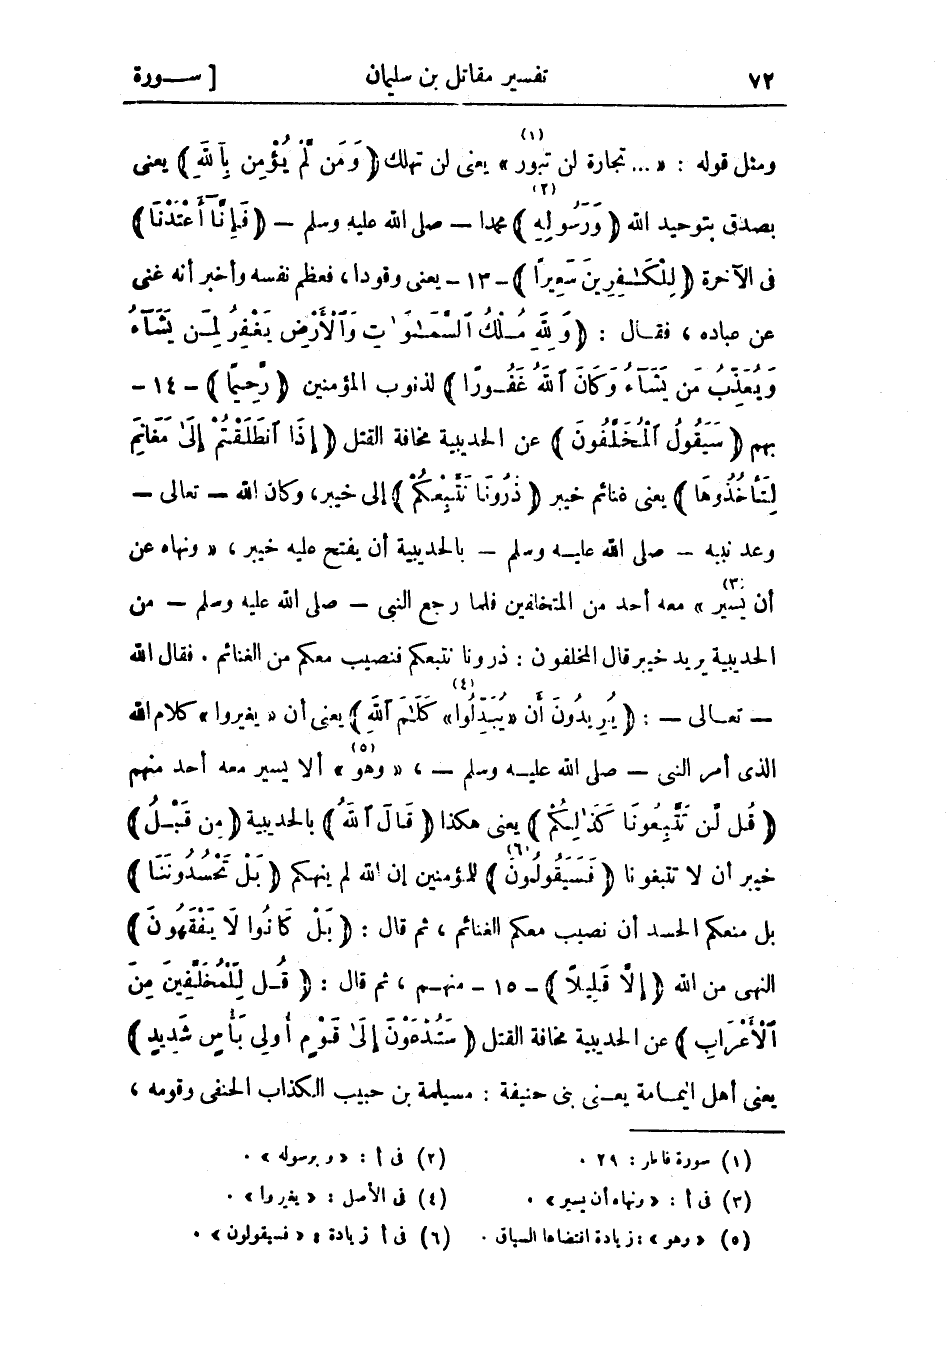 ٧٢ تفسير مقاتل بن سليمان [ ســـورة
ومثل قوله : « ... تجارة لن تبور(١) » يعنى لن تهلك ﴿ وَمَن لَّمْ يُؤْمِن بِٱللَّهِ ﴾ يعنى
يصدق بتوحيد الله ﴿ وَرَسُولِهِ(٢) ﴾ محمدا — صلى الله عليه وسلم — ﴿ فَإِنَّآ أَعْتَدْنَا ﴾
فى الآخرة ﴿ لِلْكَـٰفِرِينَ سَعِيرًا ﴾ - ١٣ - يعنى وقودا ، فعظم نفسه وأخبر أنه غنى
عن عباده ، فقـال : ﴿ وَلِلَّهِ مُـلْكُ ٱلسَّمَـٰوَٰتِ وَٱلْأَرْضِ يَغْفِرُ لِمَـن يَشَآءُ
وَيُعَذِّبُ مَن يَشَآءُ وَكَانَ ٱللَّهُ غَفُـورًا ﴾ لذنوب المؤمنين ﴿ رَّحِيمًا ﴾ - ١٤ -
بهم ﴿ سَيَقُولُ ٱلْمُخَلَّفُونَ ﴾ عن الحديبية مخافة القتل ﴿ إِذَا ٱنطَلَقْتُمْ إِلَىٰ مَغَانِمَ
لِتَأْخُذُوهَا ﴾ يعنى غنائم خيبر ﴿ ذَرُونَا نَتَّبِعْكُمْ ﴾ إلى خيبر، وكان الله — تعالى —
وعد نبيه — صلى الله عليـه وسلم — بالحديبية أن يفتح عليه خيبر ، « ونهاه عن
أن يسير(٣) » معه أحد من المتخلفين فلما رجع النبى — صلى الله عليه وسلم — من
الحديبية يريد خيبر قال المخلفون : ذرونا نتبعكم فنصيب معكم من الغنائم . فقال الله
— تعـالى — : ﴿ يُرِيدُونَ أَن «يُبَدِّلُوا(٤)» كَلَـٰمَ ٱللَّهِ ﴾ يعنى أن « يغيروا » كلام الله
الذى أمر النبى — صلى الله عليـه وسلم — ، « وهو(٥) » ألا يسير معه أحد منهم
﴿ قُـل لَّن تَتَّبِعُونَا كَذَٰلِكُمْ ﴾ يعنى هكذا ﴿ قَالَ ٱللَّهُ ﴾ بالحديبية ﴿ مِن قَبْـلُ ﴾
خيبر أن لا تتبعونا ﴿ فَسَيَقُولُونَ(٦) ﴾ للمؤمنين إن الله لم ينهكم ﴿ بَلْ تَحْسُدُونَنَا ﴾
بل منعكم الحسد أن نصيب معكم الغنائم ، ثم قال : ﴿ بَلْ كَانُوا لَا يَفْقَهُونَ ﴾
النهى من الله ﴿ إِلَّا قَلِيلًا ﴾ - ١٥ - منهـم ، ثم قال : ﴿ قُـل لِلْمُخَلَّفِينَ مِنَ
ٱلْأَعْرَابِ ﴾ عن الحديبية مخافة القتل ﴿ سَتُدْعَوْنَ إِلَىٰ قَوْمٍ أُولِى بَأْسٍ شَدِيدٍ ﴾
يعنى أهل اليمـامة يعـنى بنى حنيفة : مسيلمة بن حبيب الكذاب الحنفى وقومه ،
(١) سورة فاطر : ٢٩ . (٢) فى أ : « وبرسوله » .
(٣) فى أ : « ونهاه أن يسير » . (٤) فى الأصل : « يغيروا » .
(٥) « وهو » : زيادة اقتضاها السياق . (٦) فى أ زيادة : « فسيقولون » .